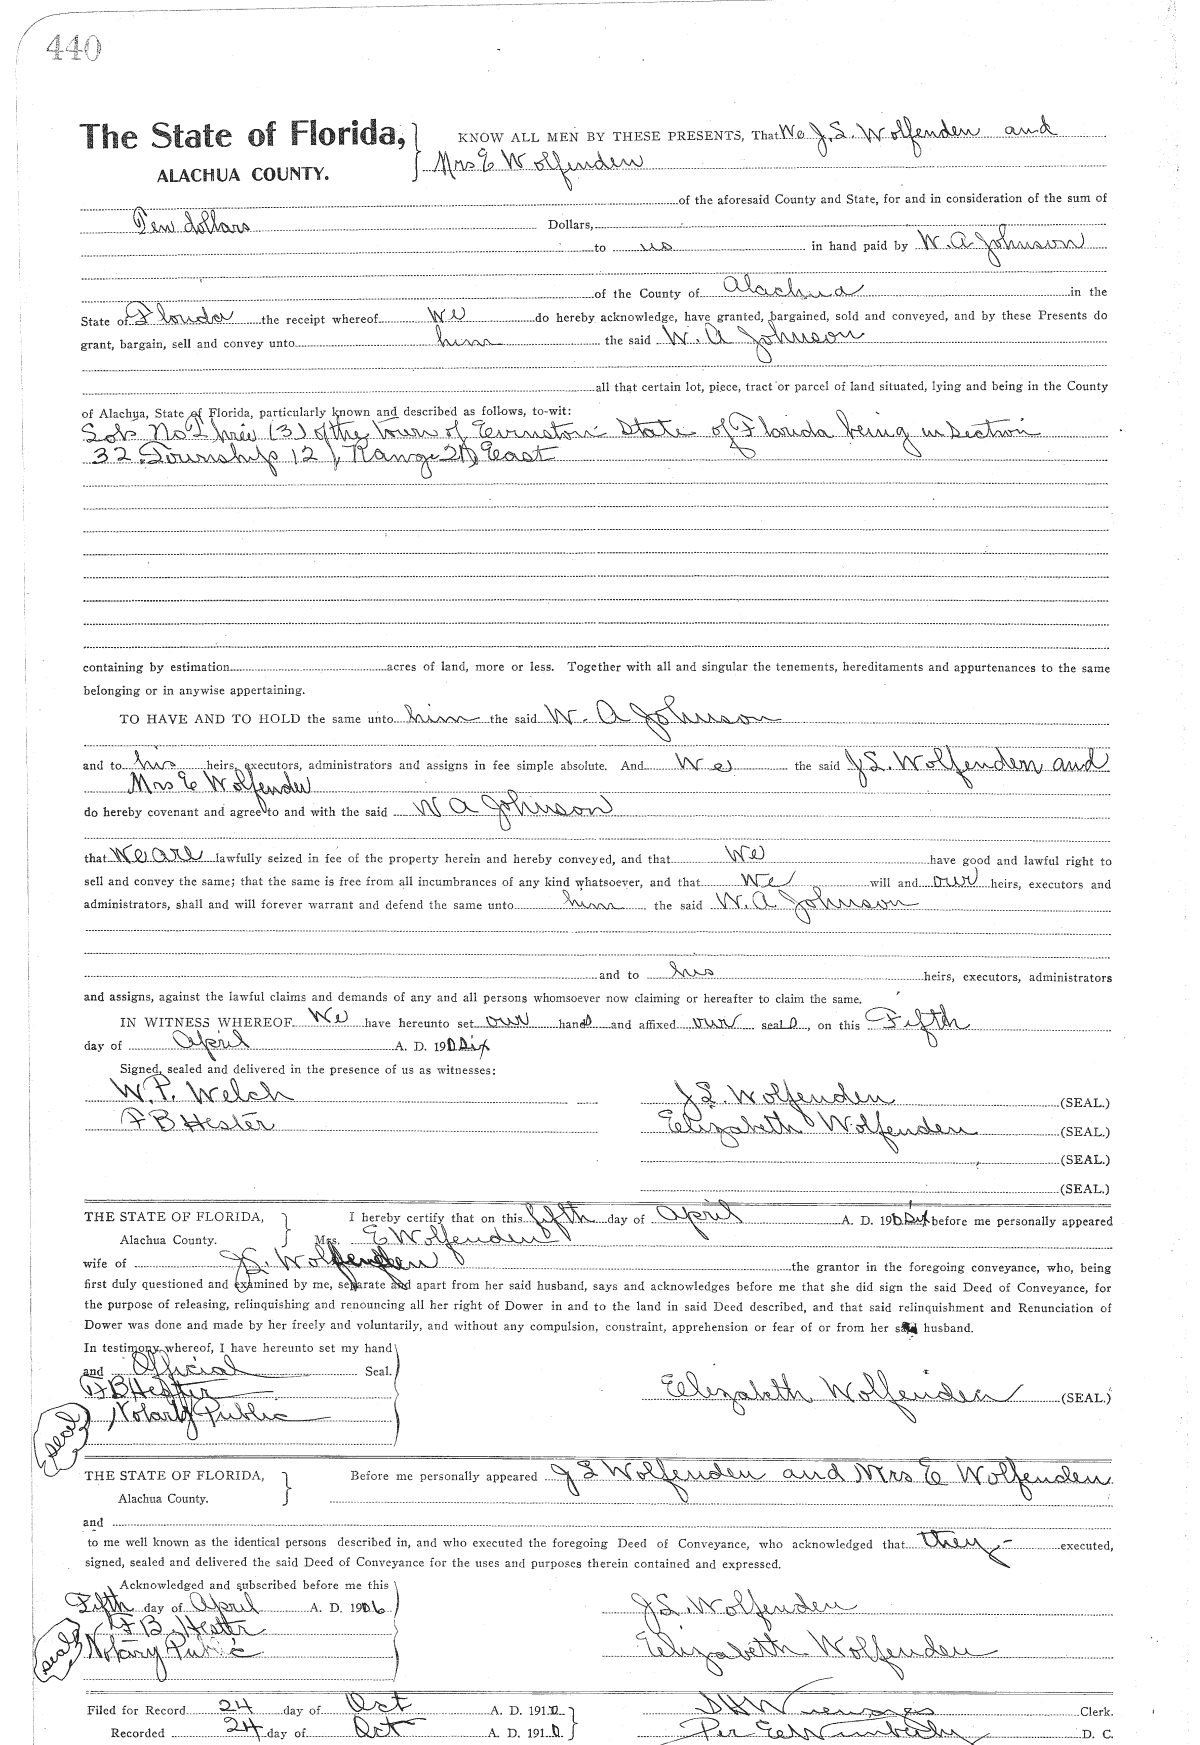 440
The State of Florida, KNOW ALL MEN BY THESE PRESENTS, That We J.S. Wolfenden and
ALACHUA COUNTY. Mrs E Wolfenden
of the aforesaid County and State, for and in consideration of the sum of
Ten dollars Dollars,
to us in hand paid by W. A Johnson
of the County of Alachua in the
State of Florida the receipt whereof we do hereby acknowledge, have granted, bargained, sold and conveyed, and by these Presents do
grant, bargain, sell and convey unto him the said W. A Johnson
all that certain lot, piece, tract or parcel of land situated, lying and being in the County
of Alachua, State of Florida, particularly known and described as follows, to-wit:
No Three (3) of the Town of Evinston State of Florida being in Section
32 Township 12, Range East
containing by estimation acres of land, more or less. Together with all and singular the tenements, hereditaments and appurtenances to the same
belonging or in anywise appertaining.
TO HAVE AND TO HOLD the same unto him the said W. A Johnson
and to his heirs, executors, administrators and assigns in fee simple absolute. And We the said J.S. Wolfenden and
Mrs E Wolfenden
do hereby covenant and agree to and with the said W A Johnson
that We are lawfully seized in fee of the property herein and hereby conveyed, and that We have good and lawful right to
sell and convey the same; that the same is free from all incumbrances of any kind whatsoever, and that We will and our heirs, executors and
administrators, shall and will forever warrant and defend the same unto him the said W. A Johnson
and to his heirs, executors, administrators
and assigns, against the lawful claims and demands of any and all persons whomsoever now claiming or hereafter to claim the same.
IN WITNESS WHEREOF We have hereunto set our hands and affixed our seals, on this Fifth
day of April A. D. 190 Six
Signed, sealed and delivered in the presence of us as witnesses:
W. P. Welch J.S. Wolfenden (SEAL.)
F B Hester Elizabeth Wolfenden (SEAL.)
(SEAL.)
(SEAL.)
THE STATE OF FLORIDA, I hereby certify that on this fifth day of April A. D. 190 Six before me personally appeared
Alachua County. Mrs. E Wolfenden
wife of J.S. Wolfenden the grantor in the foregoing conveyance, who, being
first duly questioned and examined by me, separate and apart from her said husband, says and acknowledges before me that she did sign the said Deed of Conveyance, for
the purpose of releasing, relinquishing and renouncing all her right of Dower in and to the land in said Deed described, and that said relinquishment and Renunciation of
Dower was done and made by her freely and voluntarily, and without any compulsion, constraint, apprehension or fear of or from her said husband.
In testimony whereof, I have hereunto set my hand
and Official Seal.
F B Hester Elizabeth Wolfenden (SEAL.)
Notary Public
seal
THE STATE OF FLORIDA, Before me personally appeared J S Wolfenden and Mrs E Wolfenden
Alachua County.
and
to me well known as the identical persons described in, and who executed the foregoing Deed of Conveyance, who acknowledged that they executed,
signed, sealed and delivered the said Deed of Conveyance for the uses and purposes therein contained and expressed.
Acknowledged and subscribed before me this
Fifth day of April A. D. 1906 J.S. Wolfenden
F B Hester
seal Notary Public Elizabeth Wolfenden
Filed for Record 24 day of Oct A. D. 1910 Clerk.
Recorded 24 day of Oct A. D. 1910 Per D. C.